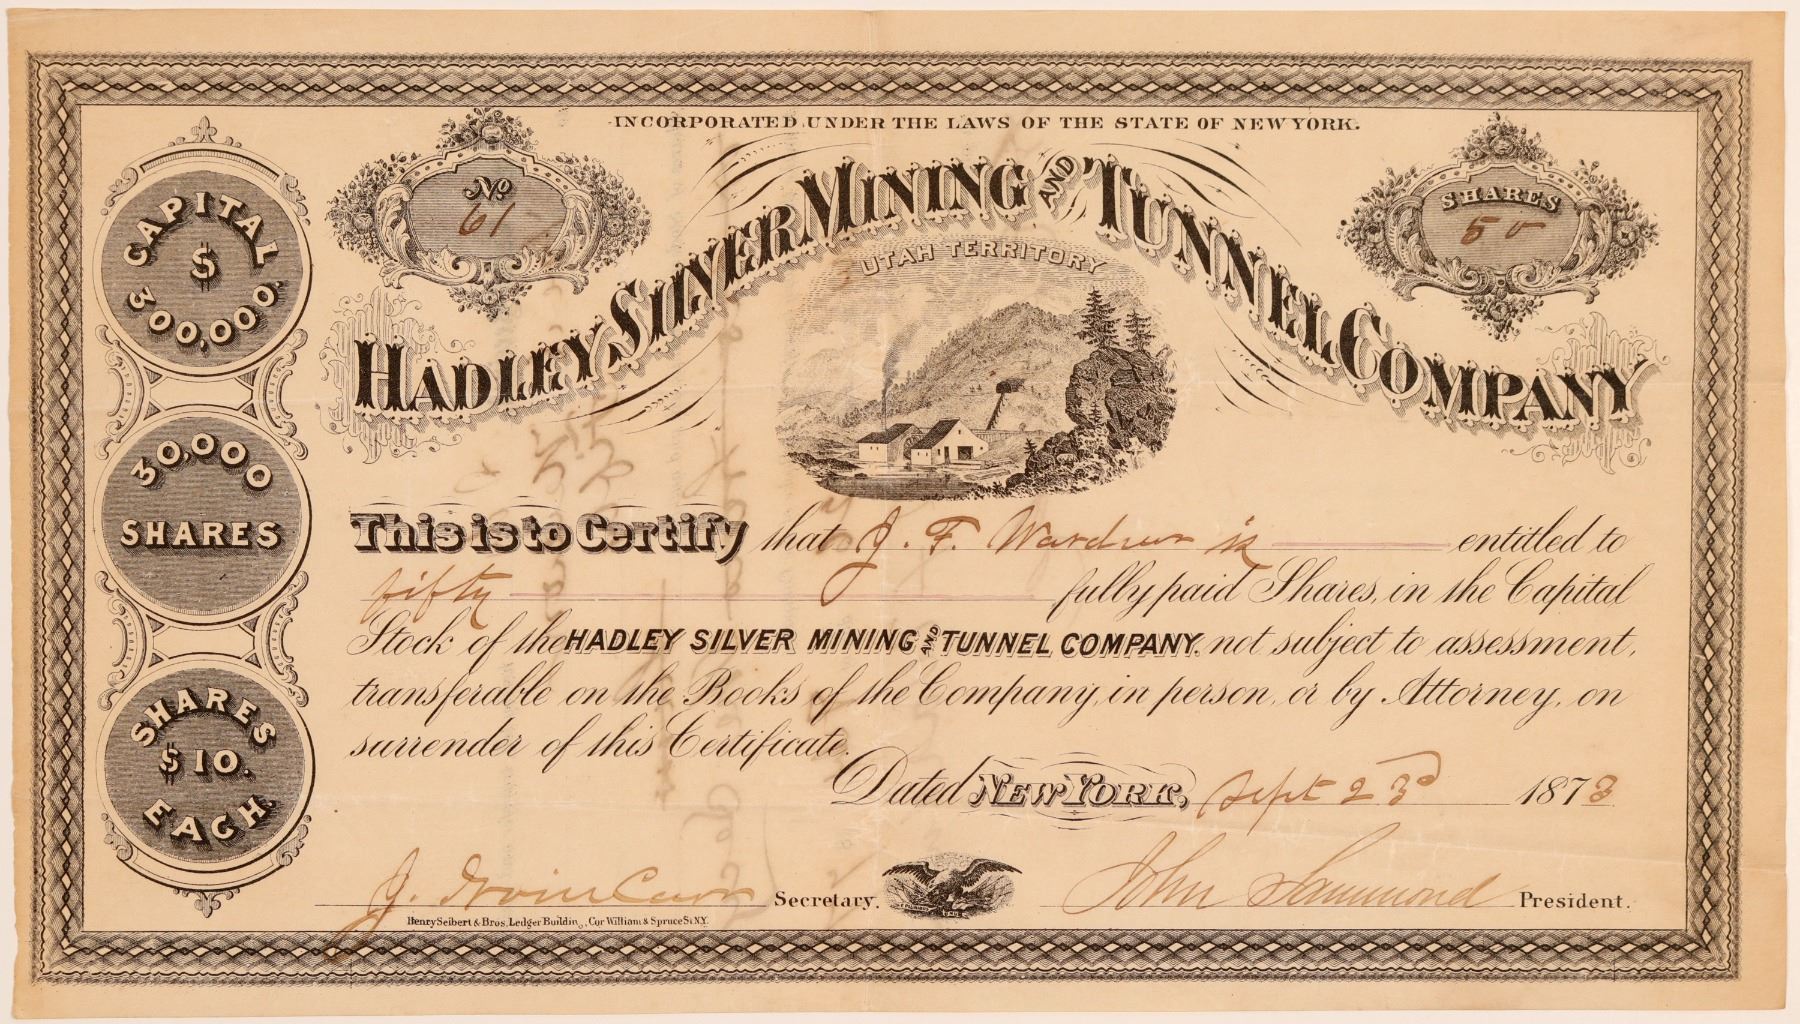 INCORPORATED UNDER THE LAWS OF THE STATE OF NEW YORK.
No 61
SHARES 50
HADLEY SILVER MINING AND TUNNEL COMPANY
UTAH TERRITORY
CAPITAL $ 300,000.
30,000 SHARES
SHARES $10. EACH.
This is to Certify that J. F. Wardner is entitled to
fifty fully paid Shares, in the Capital
Stock of the HADLEY SILVER MINING AND TUNNEL COMPANY, not subject to assessment,
transferable on the Books of the Company, in person, or by Attorney, on
surrender of this Certificate.
Dated NEW YORK, Sept 23d 1873
J. Secretary. John President.
Henry Seibert & Bros. Ledger Building, Cor William & Spruce St. N.Y.